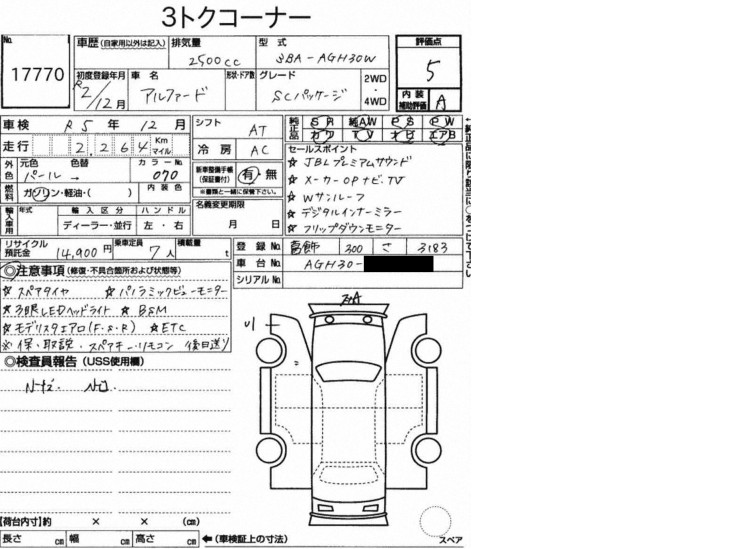 3トクコーナー
No.
17770
車歴 (自家用以外は記入)
排気量 2500cc
型式 3BA-AGH30W
評価点 5
初度登録年月 R2/12月
車名 アルファード
形状・ドア数
グレード SCパッケージ
2WD・4WD
内装補助評価 A
車検 R5年 12月
シフト AT
純正品
SR 純AW PS PW
カワ TV ナビ エアB
走行 2,264 Km マイル
冷房 AC
セールスポイント
☆ JBLプレミアムサウンド
☆ メーカーOPナビ、TV
☆ Wサンルーフ
☆ デジタルインナーミラー
☆ フリップダウンモニター
外色 元色 パール 色替 → カラーNo. 070
新車整備手帳 (保証書付) 有・無
※書類と一緒に保管下さい。
燃料 ガソリン・軽油・( ) 内装色
名義変更期限 月 日
輸入車用 年式 輸入区分 ハンドル
ディーラー・並行 左・右
リサイクル預託金 14,900円 乗車定員 7人 積載量 t
登録No. 葛飾 300 さ 3183
車台No. AGH30-
シリアルNo.
◎注意事項 (修復・不具合箇所および状態等)
☆スペアタイヤ ☆パノラミックビューモニター
☆3眼LEDヘッドライト ☆BSM
☆モデリスタエアロ(F・S・R) ☆ETC
※保、取説、スペアキー・リモコン 後日送り
◎検査員報告 (USS使用欄)
U1
【荷台内寸】約 × × (cm)
長さ cm 幅 cm 高さ cm ← (車検証上の寸法)
スペア